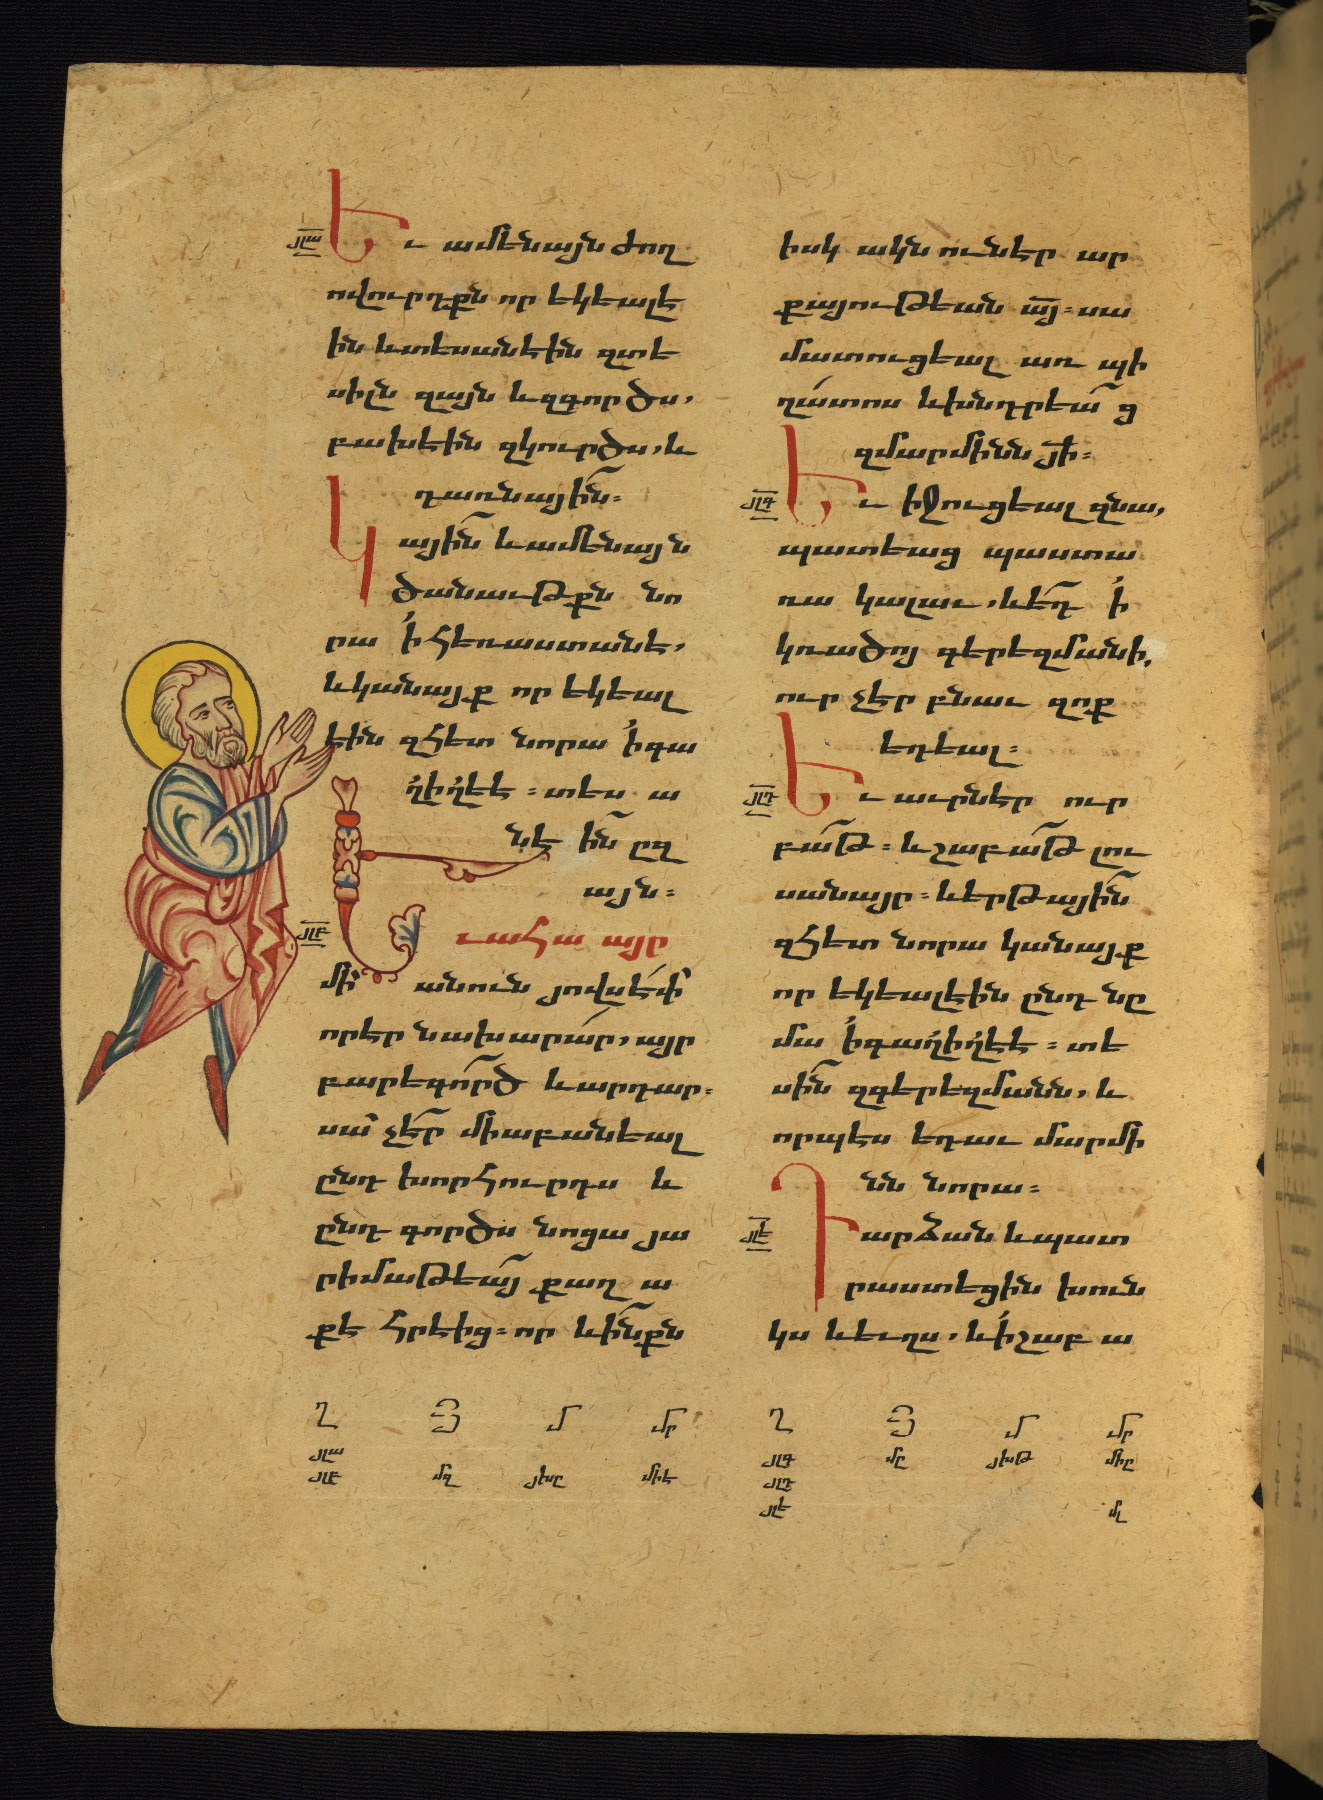 յլա
Եւ ամենայն ժող
ովուրդքն որ եկեալէ
ին և տեսանէին զտե
սիլն զայն և զգործս,
բախէին զկուրծս, և
դառնային։
Կային և ամենայն
ծանաւթքն նո
րա ի հեռաստանէ,
և կանայք որ եկեալ
էին զհետ նորա ի գա
ղիղեէ ։ տես ա
նէ ին ըզ
այն։
յլբ
Եւ ահա այր
մի անուն յովսէփ
որ էր նախարար, այր
բարեգործ և արդար։
սա չէր միաբանեալ
ընդ խորհուրդս և
ընդ գործս նոցա յա
րիմաթեայ քաղ ա
քէ հրէից ։ որ և ինքն
իսկ ակն ունէր ար
քայութեան այ ։ սա
մատուցեալ առ պի
ղատոս և խնդրեաց
զմարմինն յի։
յլգ
Եւ իջուցեալ զնա,
պատեաց պաստա
ռա կալաւ, և եդ ի
կռածոյ գերեզմանի,
ուր չէր բնաւ զոք
եդեալ։
յլդ
Եւ աւրն էր ուր
բաթ ։ և շաբաթ լու
սանայր ։ և երթային
զհետ նորա կանայք
որ եկեալ էին ընդ նը
մա ի գաղիղեէ ։ տե
սին զգերեզմանն, և
որպէս եդաւ մարմի
նն նորա։
յլե
Դարձան և պատ
րաստեցին խուն
կս և եւղս, և ի շաբ ա
Ղ Մ Մր
յլա
յլբ մզ յխը միե
Ղ Մ Մր
յլգ մը յխթ միը
յլդ
յլե մլ